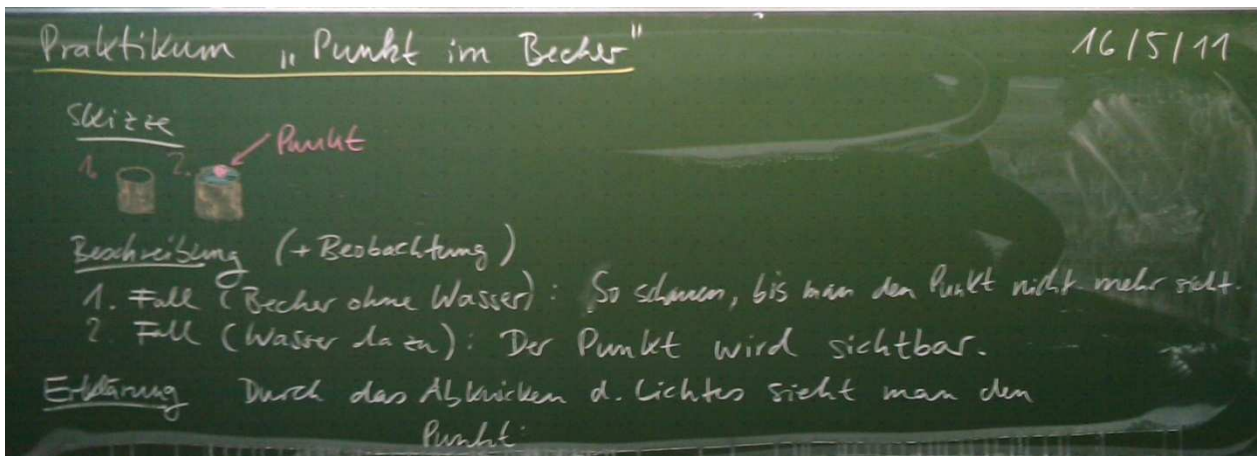 Praktikum „Punkt im Becher" 16/5/11
Skizze
1. 2. Punkt
Beschreibung (+ Beobachtung)
1. Fall (Becher ohne Wasser): So schauen, bis man den Punkt nicht mehr sieht.
2. Fall (Wasser dazu): Der Punkt wird sichtbar.
Erklärung Durch das Abknicken d. Lichtes sieht man den
Punkt.